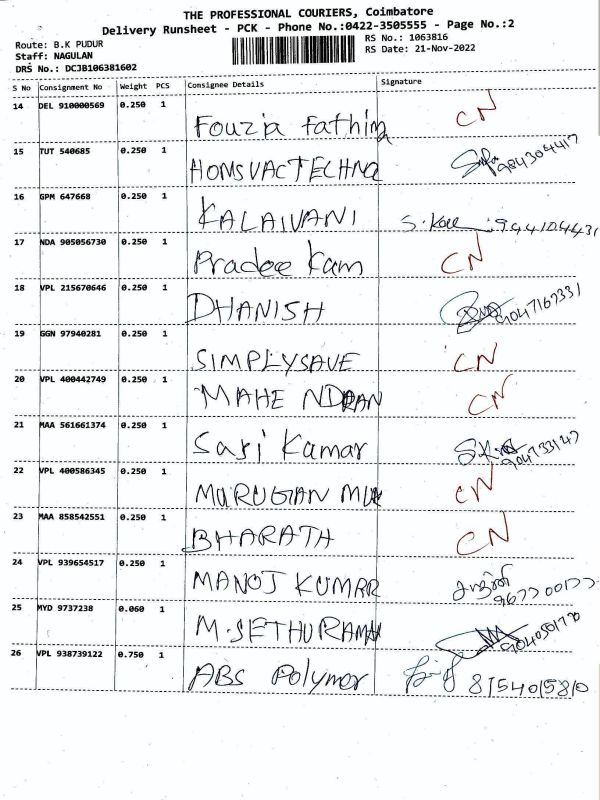 THE PROFESSIONAL COURIERS, Coimbatore
Delivery Runsheet - PCK - Phone No.:0422-3505555 - Page No.:2
Route: B.K PUDUR RS No.: 1063816
Staff: NAGULAN RS Date: 21-Nov-2022
DRS No.: DCJB106381602
S No Consignment No Weight PCS Consignee Details Signature
14 DEL 910000569 0.250 1 Fouzia Fathima CN
15 TUT 540685 0.250 1 HOMSVACTECHNO 984304417
16 GPM 647668 0.250 1 KALAIVANI S. Kal 944104431
17 NDA 905056730 0.250 1 Pradee Kam CN
18 VPL 215670646 0.250 1 DHANISH 9047167331
19 GGN 97940281 0.250 1 SIMPLYSAVE CN
20 VPL 400442749 0.250 1 MAHE NDRAN CN
21 MAA 561661374 0.250 1 Sasi Kamar
22 VPL 400586345 0.250 1 MURUGAN CN
23 MAA 858542551 0.250 1 BHARATH CN
24 VPL 939654517 0.250 1 MANOJ KUMAR
25 MYD 9737238 0.060 1 M.SETHURAMA
26 VPL 938739122 0.750 1 ABS Polymer 8154015810